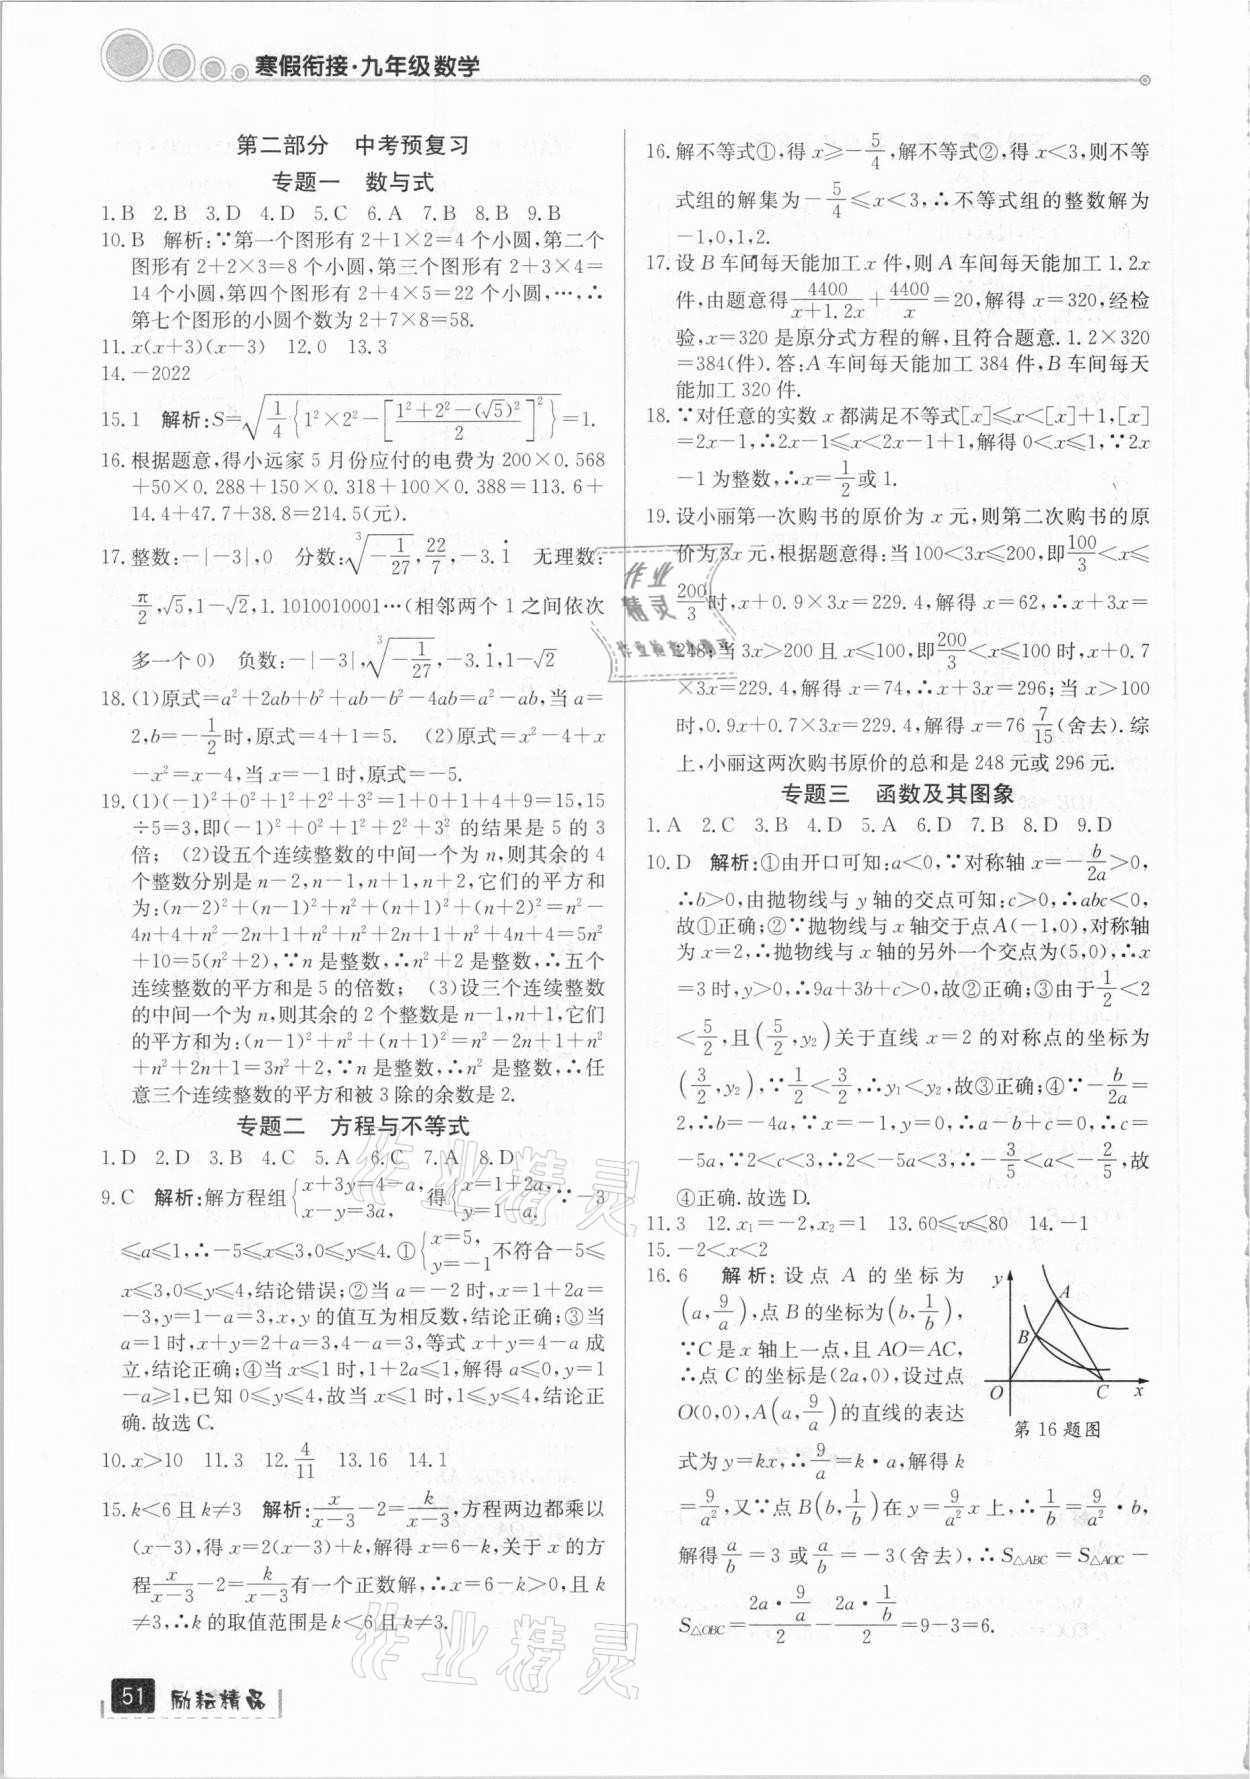 寒假衔接·九年级数学
第二部分　中考预复习
专题一　数与式
1.B 2.B 3.D 4.D 5.C 6.A 7.B 8.B 9.B
10.B 解析:∵第一个图形有2+1×2=4个小圆,第二个
图形有2+2×3=8个小圆,第三个图形有2+3×4=
14个小圆,第四个图形有2+4×5=22个小圆,…,∴
第七个图形的小圆个数为2+7×8=58.
11.x(x+3)(x-3) 12.0 13.3
14.-2022
15.1 解析:S=√(1/4{1²×2²-[(1²+2²-(√5)²)/2]²})=1.
16.根据题意,得小远家5月份应付的电费为200×0.568
+50×0.288+150×0.318+100×0.388=113.6+
14.4+47.7+38.8=214.5(元).
17.整数:-|-3|,0 分数:∛(-1/27),22/7,-3.1̇ 无理数:
π/2,√5,1-√2,1.1010010001…(相邻两个1之间依次
多一个0) 负数:-|-3|,∛(-1/27),-3.1̇,1-√2
18.(1)原式=a²+2ab+b²+ab-b²-4ab=a²-ab,当a=
2,b=-1/2时,原式=4+1=5. (2)原式=x²-4+x
-x²=x-4,当x=-1时,原式=-5.
19.(1)(-1)²+0²+1²+2²+3²=1+0+1+4+9=15,15
÷5=3,即(-1)²+0²+1²+2²+3²的结果是5的3
倍; (2)设五个连续整数的中间一个为n,则其余的4
个整数分别是n-2,n-1,n+1,n+2,它们的平方和
为:(n-2)²+(n-1)²+n²+(n+1)²+(n+2)²=n²-
4n+4+n²-2n+1+n²+n²+2n+1+n²+4n+4=5n²
+10=5(n²+2),∵n是整数,∴n²+2是整数,∴五个
连续整数的平方和是5的倍数; (3)设三个连续整数
的中间一个为n,则其余的2个整数是n-1,n+1,它们
的平方和为:(n-1)²+n²+(n+1)²=n²-2n+1+n²
+n²+2n+1=3n²+2,∵n是整数,∴n²是整数,∴任
意三个连续整数的平方和被3除的余数是2.
专题二　方程与不等式
1.D 2.D 3.B 4.C 5.A 6.C 7.A 8.D
9.C 解析:解方程组{x+3y=4-a, x-y=3a,得{x=1+2a, y=1-a.∵-3
≤a≤1,∴-5≤x≤3,0≤y≤4.①{x=5, y=-1不符合-5≤
x≤3,0≤y≤4,结论错误;②当a=-2时,x=1+2a=
-3,y=1-a=3,x,y的值互为相反数,结论正确;③当
a=1时,x+y=2+a=3,4-a=3,等式x+y=4-a成
立,结论正确;④当x≤1时,1+2a≤1,解得a≤0,y=1
-a≥1,已知0≤y≤4,故当x≤1时,1≤y≤4,结论正
确.故选C.
10.x>10 11.3 12.4/11 13.16 14.1
15.k<6且k≠3 解析:x/(x-3)-2=k/(x-3),方程两边都乘以
(x-3),得x=2(x-3)+k,解得x=6-k,关于x的方
程x/(x-3)-2=k/(x-3)有一个正数解,∴x=6-k>0,且k
≠3,∴k的取值范围是k<6且k≠3.
16.解不等式①,得x≥-5/4,解不等式②,得x<3,则不等
式组的解集为-5/4≤x<3,∴不等式组的整数解为
-1,0,1,2.
17.设B车间每天能加工x件,则A车间每天能加工1.2x
件,由题意得4400/(x+1.2x)+4400/x=20,解得x=320,经检
验,x=320是原分式方程的解,且符合题意.1.2×320
=384(件).答:A车间每天能加工384件,B车间每天
能加工320件.
18.∵对任意的实数x都满足不等式[x]≤x<[x]+1,[x]
=2x-1,∴2x-1≤x<2x-1+1,解得0<x≤1,∵2x
-1为整数,∴x=1/2或1.
19.设小丽第一次购书的原价为x元,则第二次购书的原
价为3x元,根据题意得:当100<3x≤200,即100/3<x≤
200/3时,x+0.9×3x=229.4,解得x=62,∴x+3x=
248;当3x>200且x≤100,即200/3<x≤100时,x+0.7
×3x=229.4,解得x=74,∴x+3x=296;当x>100
时,0.9x+0.7×3x=229.4,解得x=76 7/15(舍去).综
上,小丽这两次购书原价的总和是248元或296元.
专题三　函数及其图象
1.A 2.C 3.B 4.D 5.A 6.D 7.B 8.D 9.D
10.D 解析:①由开口可知:a<0,∵对称轴x=-b/2a>0,
∴b>0,由抛物线与y轴的交点可知:c>0,∴abc<0,
故①正确;②∵抛物线与x轴交于点A(-1,0),对称轴
为x=2,∴抛物线与x轴的另外一个交点为(5,0),∴x
=3时,y>0,∴9a+3b+c>0,故②正确;③由于1/2<2
<5/2,且(5/2,y₂)关于直线x=2的对称点的坐标为
(3/2,y₂),∵1/2<3/2,∴y₁<y₂,故③正确;④∵-b/2a=
2,∴b=-4a,∵x=-1,y=0,∴a-b+c=0,∴c=
-5a,∵2<c<3,∴2<-5a<3,∴-3/5<a<-2/5,故
④正确.故选D.
11.3 12.x₁=-2,x₂=1 13.60≤v≤80 14.-1
15.-2<x<2
16.6 解析:设点A的坐标为
(a,9/a),点B的坐标为(b,1/b),
∵C是x轴上一点,且AO=AC,
∴点C的坐标是(2a,0),设过点
O(0,0),A(a,9/a)的直线的表达
式为y=kx,∴9/a=k·a,解得k
=9/a²,又∵点B(b,1/b)在y=9/a²x上,∴1/b=9/a²·b,
解得a/b=3或a/b=-3(舍去),∴S△ABC=S△AOC-
S△OBC=(2a·9/a)/2-(2a·1/b)/2=9-3=6.
y
A
B
O
C
x
第16题图
作业
精灵
作业精灵
作业精灵
51 励耘精品